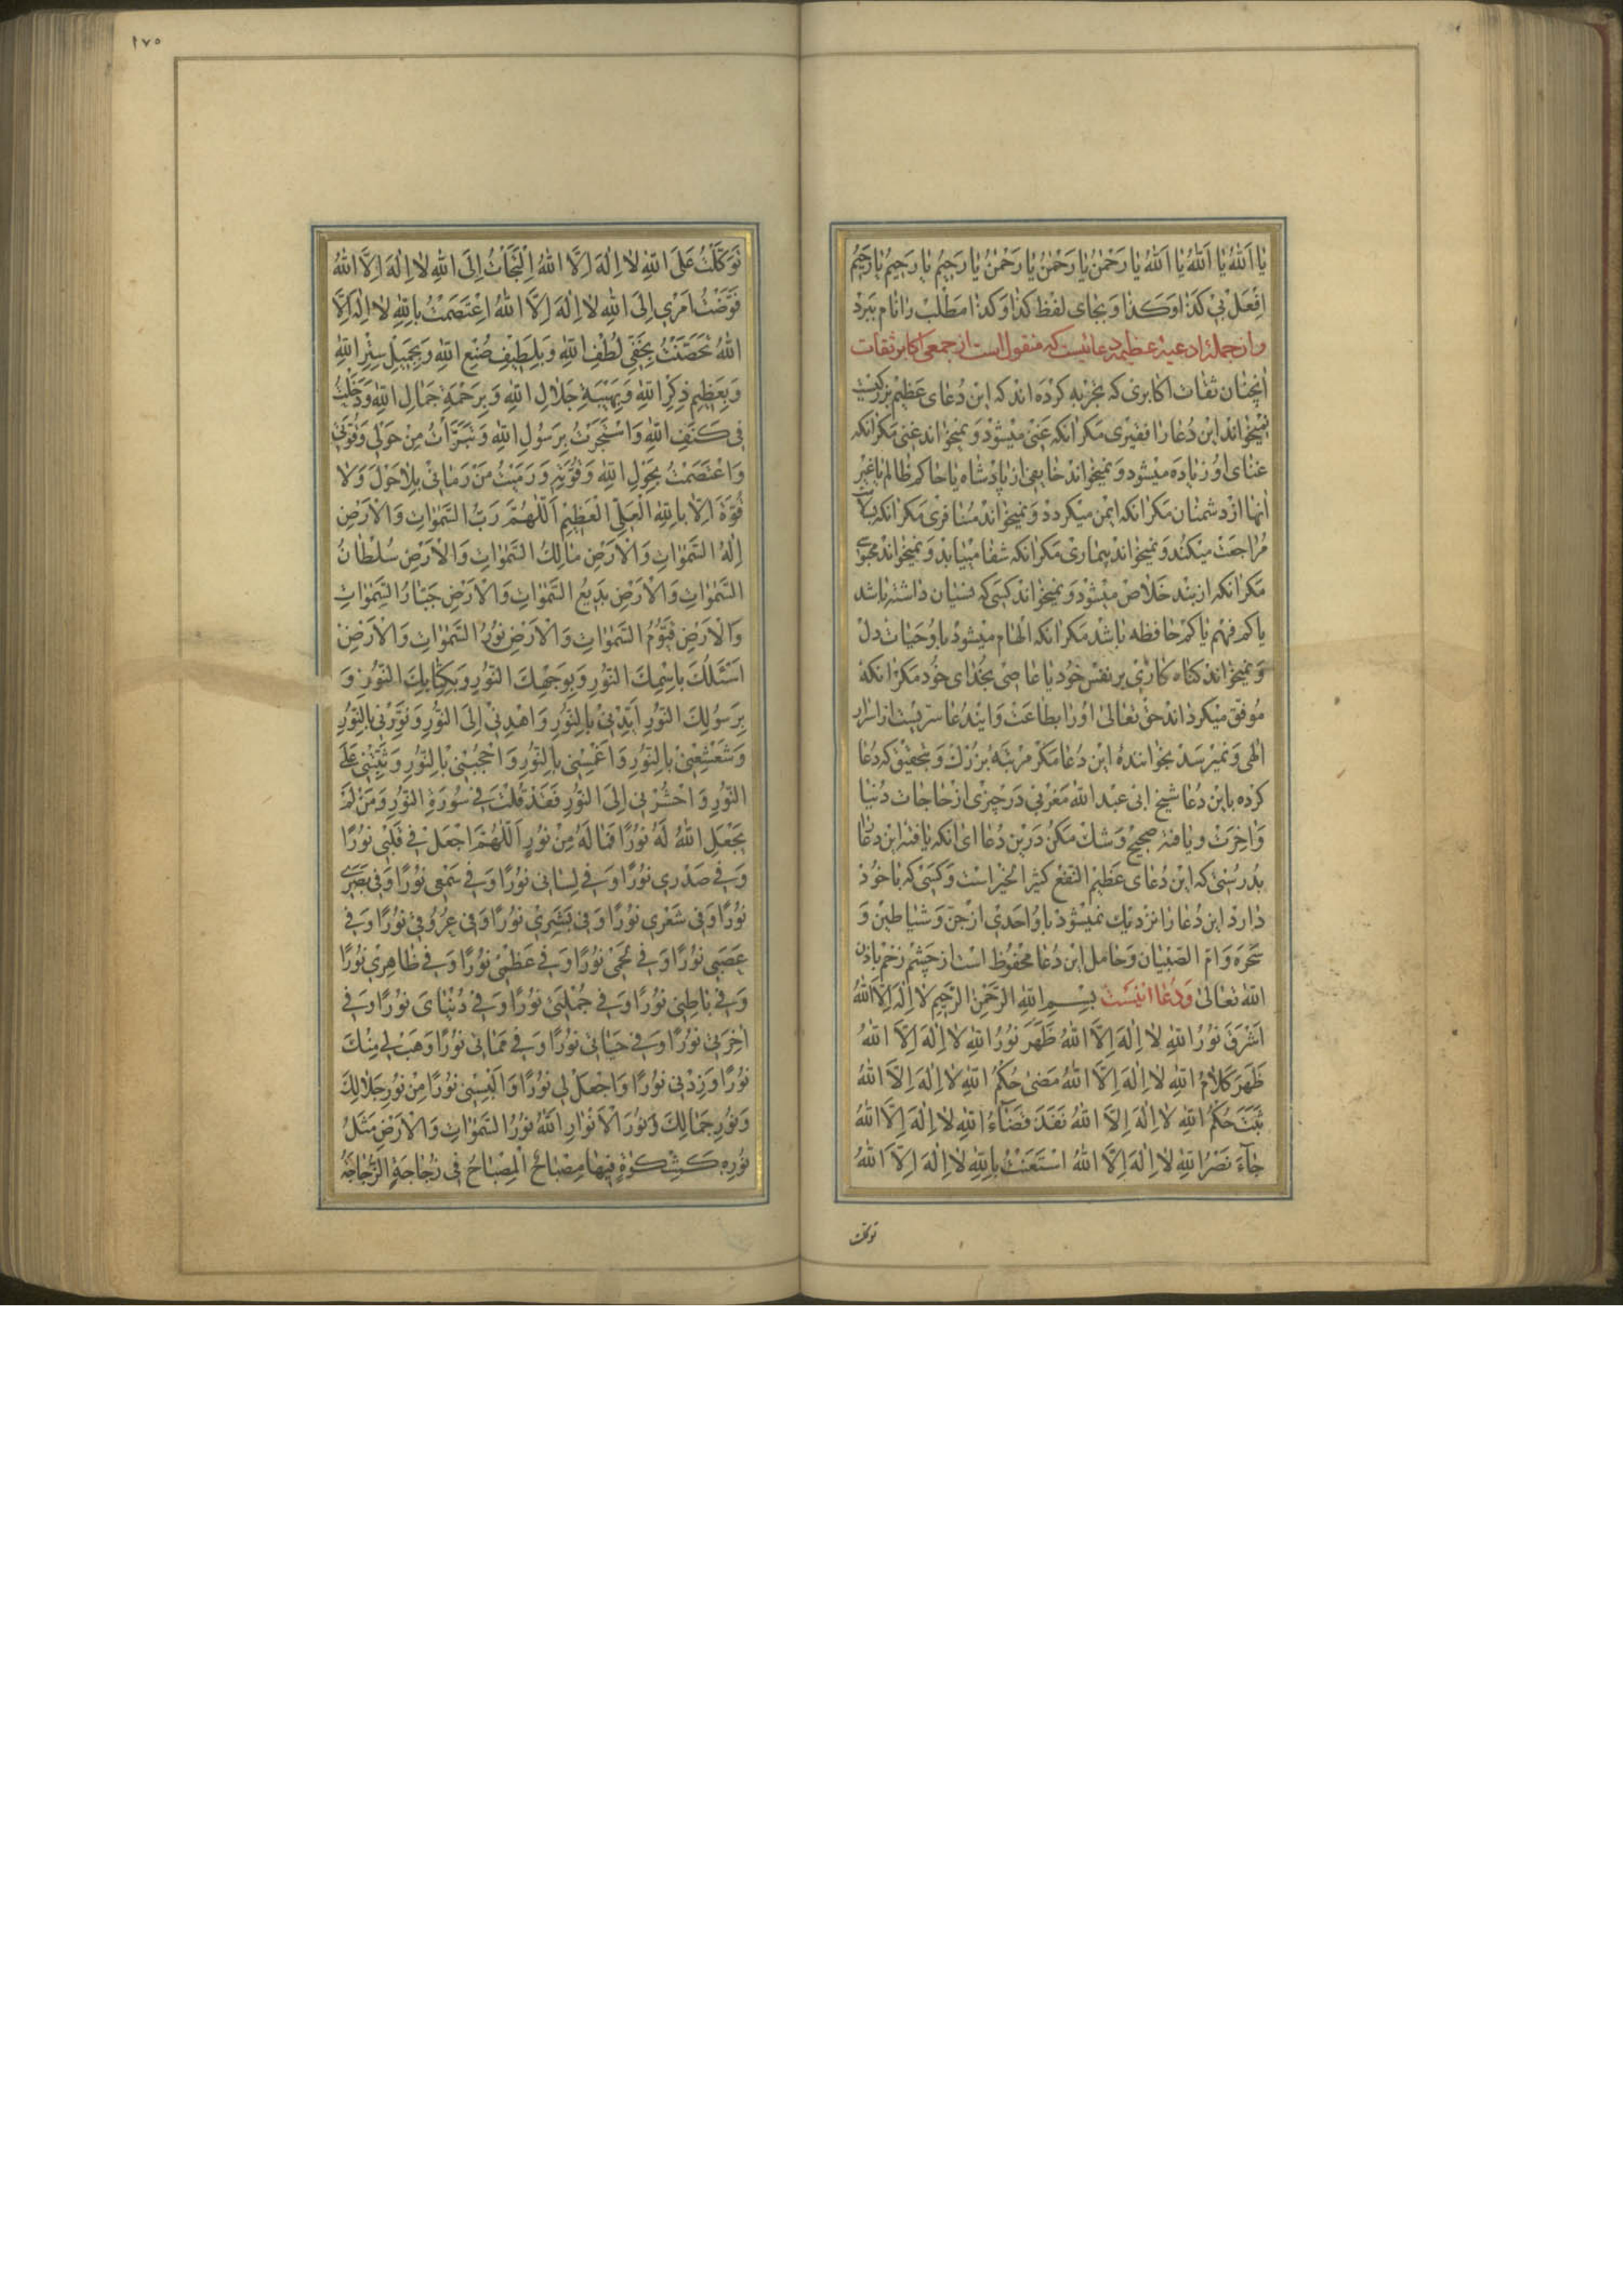 يٰا اَللّٰهُ يٰا اَللّٰهُ يٰا اَللّٰهُ يٰا رَحْمٰنُ يٰا رَحْمٰنُ يٰا رَحْمٰنُ يٰا رَحيمُ يٰا رَحيمُ يٰا رَحيمُ
اِفْعَلْ بي كَذٰا وَكَذٰا و بجاى لفظ كذا و كذا مطلب را نام ببرد
و از جمله ادعيه عظيمه دعائيست كه منقول است از جمعى اكابر ثقات
آنچنان ثقات اكابرى كه تجربه كرده اند كه اين دعاى عظيم بزركيست
نميخواند اين دعا را فقيرى مكر آنكه غنى ميشود و نميخواند غنى مكر آنكه
غناى او زياده ميشود و نميخواند خايفى از پادشاه يا حاكم ظالم يا غير
آنها از دشمنان مكر آنكه ايمن ميكردد و نميخواند مسافرى مكر آنكه بسلامت
مراجعت ميكند و نميخواند بيمارى مكر آنكه شفا مييابد و نميخواند محبوسى
مكر آنكه از بند خلاص ميشود و نميخواند كسى كه نسيان داشته باشد
يا كم فهم يا كم حافظه باشد مكر آنكه الهام ميشود باو حيات دل
و نميخواند كناه كارى بر نفس خود يا عاصى بخداى خود مكر آنكه
موفق ميكرداند حق تعالى او را بطاعت و ايندعا سريست از اسرار
الهى و نميرسد بخواننده اين دعا مكر مرتبه بزرك و بتحقيق كه دعا
كرده باين دعا شيخ ابى عبد الله مغربى در چيزى از حاجات دنيا
و آخرت و يافته صحيح و شك مكن درين دعا اى آنكه يافته اين دعا را
بدرستى كه اين دعاى عظيم النفع كثير الخير است و كسى كه با خود
دارد اين دعا را نزديك نميشود باو احدى از جن و شياطين و
سحره و ام الصبيان و حامل اين دعا محفوظ است از چشم زخم باذن
الله تعالى و دعا اينست بِسْمِ اللّٰهِ الرَّحْمٰنِ الرَّحيمِ لا اِلٰهَ اِلَّا اللّٰهُ
اَشْرَقَ نُورُ اللّٰهِ لا اِلٰهَ اِلَّا اللّٰهُ ظَهَرَ نُورُ اللّٰهِ لا اِلٰهَ اِلَّا اللّٰهُ
ظَهَرَ كَلامُ اللّٰهِ لا اِلٰهَ اِلَّا اللّٰهُ مَضىٰ حُكْمُ اللّٰهِ لا اِلٰهَ اِلَّا اللّٰهُ
ثَبَتَ حُكْمُ اللّٰهِ لا اِلٰهَ اِلَّا اللّٰهُ نَفَذَ قَضٰاءُ اللّٰهِ لا اِلٰهَ اِلَّا اللّٰهُ
جٰاءَ نَصْرُ اللّٰهِ لا اِلٰهَ اِلَّا اللّٰهُ اسْتَعَنْتُ بِاللّٰهِ لا اِلٰهَ اِلَّا اللّٰهُ
توكلت
١٧٥
تَوَكَّلْتُ عَلَى اللّٰهِ لا اِلٰهَ اِلَّا اللّٰهُ اِلْتَجَأْتُ اِلَى اللّٰهِ لا اِلٰهَ اِلَّا اللّٰهُ
فَوَّضْتُ اَمْري اِلَى اللّٰهِ لا اِلٰهَ اِلَّا اللّٰهُ اِعْتَصَمْتُ بِاللّٰهِ لا اِلٰهَ اِلَّا
اللّٰهُ تَحَصَّنْتُ بِخَفِيِّ لُطْفِ اللّٰهِ وَبِلَطيفِ صُنْعِ اللّٰهِ وَبِجَميلِ سِتْرِ اللّٰهِ
وَبِعَظيمِ ذِكْرِ اللّٰهِ وَبِهَيْبَةِ جَلالِ اللّٰهِ وَبِرَحْمَةِ جَمٰالِ اللّٰهِ وَدَخَلْتُ
في كَنَفِ اللّٰهِ وَاسْتَجَرْتُ بِرَسُولِ اللّٰهِ وَتَبَرَّأْتُ مِنْ حَوْلي وَقُوَّتي
وَاعْتَصَمْتُ بِحَوْلِ اللّٰهِ وَقُوَّتِهِ وَرَمَيْتُ مَنْ رَمٰاني بِلاحَوْلَ وَلا
قُوَّةَ اِلّا بِاللّٰهِ الْعَلِيِّ الْعَظيمِ اَللّٰهُمَّ رَبَّ السَّمٰوٰاتِ وَالْاَرْضِ
اِلٰهُ السَّمٰوٰاتِ وَالْاَرْضِ مٰالِكُ السَّمٰوٰاتِ وَالْاَرْضِ سُلْطٰانُ
السَّمٰوٰاتِ وَالْاَرْضِ بَديعُ السَّمٰوٰاتِ وَالْاَرْضِ جَبّٰارُ السَّمٰوٰاتِ
وَالْاَرْضِ قَيُّومُ السَّمٰوٰاتِ وَالْاَرْضِ نُورُ السَّمٰوٰاتِ وَالْاَرْضِ
اَسْئَلُكَ بِاسْمِكَ النُّورِ وَبِوَجْهِكَ النُّورِ وَبِكِتٰابِكَ النُّورِ وَ
بِرَسُولِكَ النُّورِ اَيِّدْني بِالنُّورِ وَاهْدِني اِلَى النُّورِ وَنَوِّرْني بِالنُّورِ
وَشَعْشِعْني بِالنُّورِ وَاغْمِسْني بِالنُّورِ وَاحْجُبْني بِالنُّورِ وَثَبِّتْني عَلَى
النُّورِ وَاحْشُرْني اِلَى النُّورِ فَقَدْ قُلْتَ في سُورَةِ النُّورِ وَمَنْ لَمْ
يَجْعَلِ اللّٰهُ لَهُ نُورًا فَمٰا لَهُ مِنْ نُورٍ اَللّٰهُمَّ اجْعَلْ في قَلْبي نُورًا
وَفي صَدْري نُورًا وَفي لِسٰاني نُورًا وَفي سَمْعي نُورًا وَفي بَصَري
نُورًا وَفي شَعْري نُورًا وَفي بَشَري نُورًا وَفي عُرُوقي نُورًا وَفي
عَصَبي نُورًا وَفي مُخّي نُورًا وَفي عَظْمي نُورًا وَفي ظٰاهِري نُورًا
وَفي بٰاطِني نُورًا وَفي جُمْلَتي نُورًا وَفي دُنْيٰايَ نُورًا وَفي
اٰخِرَتي نُورًا وَفي حَيٰاتي نُورًا وَفي مَمٰاتي نُورًا وَهَبْ لي مِنْكَ
نُورًا وَزِدْني نُورًا وَاجْعَلْ لي نُورًا وَاَلْبِسْني نُورًا مِنْ نُورِ جَلالِكَ
وَنُورِ جَمٰالِكَ وَنُورَ الْاَنْوٰارِ اَللّٰهُ نُورُ السَّمٰوٰاتِ وَالْاَرْضِ مَثَلُ
نُورِهِ كَمِشْكٰوةٍ فيهٰا مِصْبٰاحٌ الْمِصْبٰاحُ في زُجٰاجَةٍ الزُّجٰاجَةُ